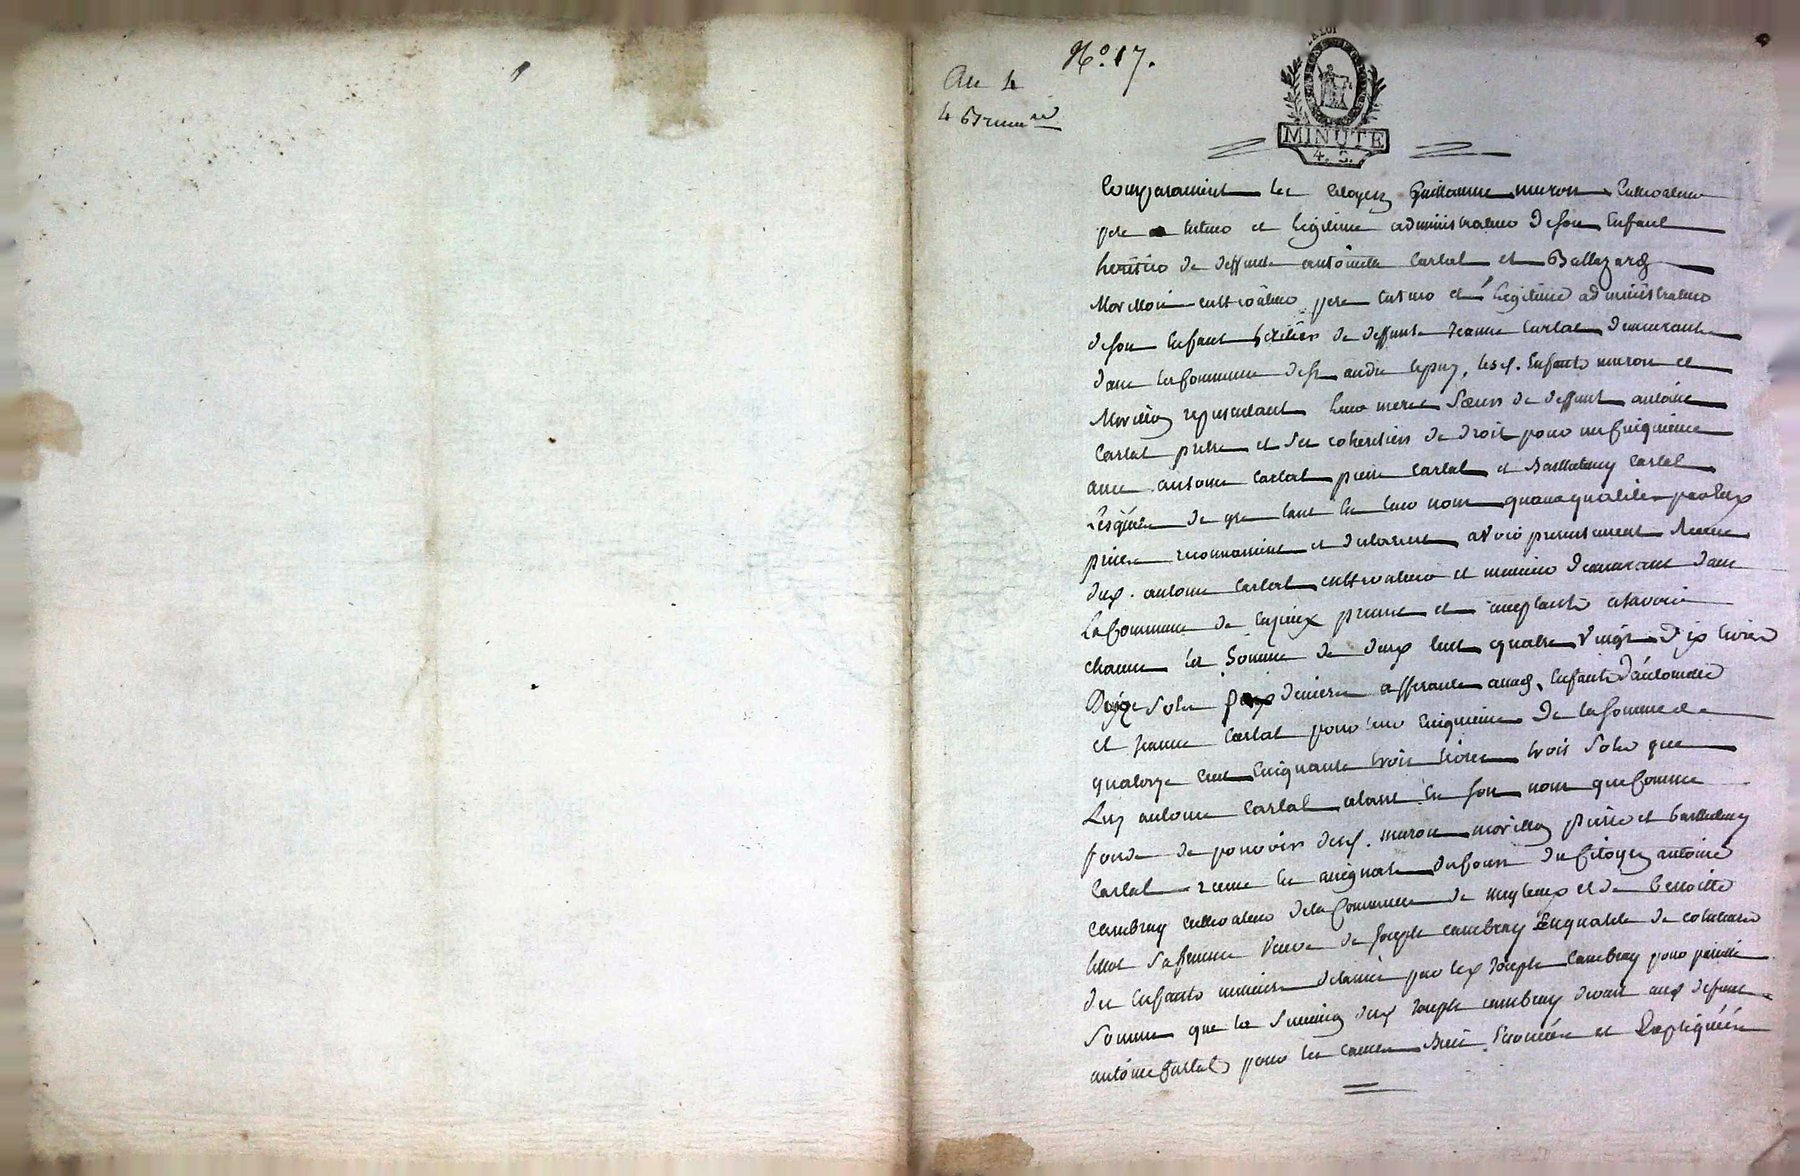 N.° 17.
An 4
4 Brum.re
LA LOI
MINUTE
4. S.
Comparaissent les citoyens Guillaume muron cultivateur
pere tuteur et legitime administrateur de son Enfant
heritier de deffunte antoinette Cartal et Baltazard
Morillon cultivateur pere tuteur et legitime administrateur
de son Enfant heritier de deffunte Jeanne Cartal demeurants
dans la Commune de St andré lepuy, lesd. Enfants muron et
Morillon representant leur mere Sœurs de deffunt antoine
Cartal pretre et ses coheritiers de droit pour un Cinquieme
avec antoine Cartal pierre Cartal et Barthelemy Cartal
Lesquels de gre tant en leur nom quaux qualités par Eux
prises reconnaissent et declarent avoir presentement Receu
dud. antoine Cartal cultivateur et demeurant dans
La Commune de present et acceptant asavoir
chacun la Somme de deux cent quatre Vingt dix livres
Dix Sols deniers afferante auxd. Enfants d'antoinette
et Jeanne Cartal pour leur cinquieme De la Somme de
quatorze cent Cinquante trois livres trois Sols que
Luy antoine Cartal tant En son nom que Comme
fondé de pouvoir desd. muron morillon pierre et barthelemy
Cartal receu en assignats du Citoyen antoine
cambray cultivateur dela Commune de et de benoitte
Sa femme Veuve de Joseph cambray En qualité de
des Enfants mineurs delaissés par led Joseph Cambray pour pareille
Somme que la Succession dud Joseph cambray devait aud defunt
antoine Cartal pour les causes Enoncées et Expliquées